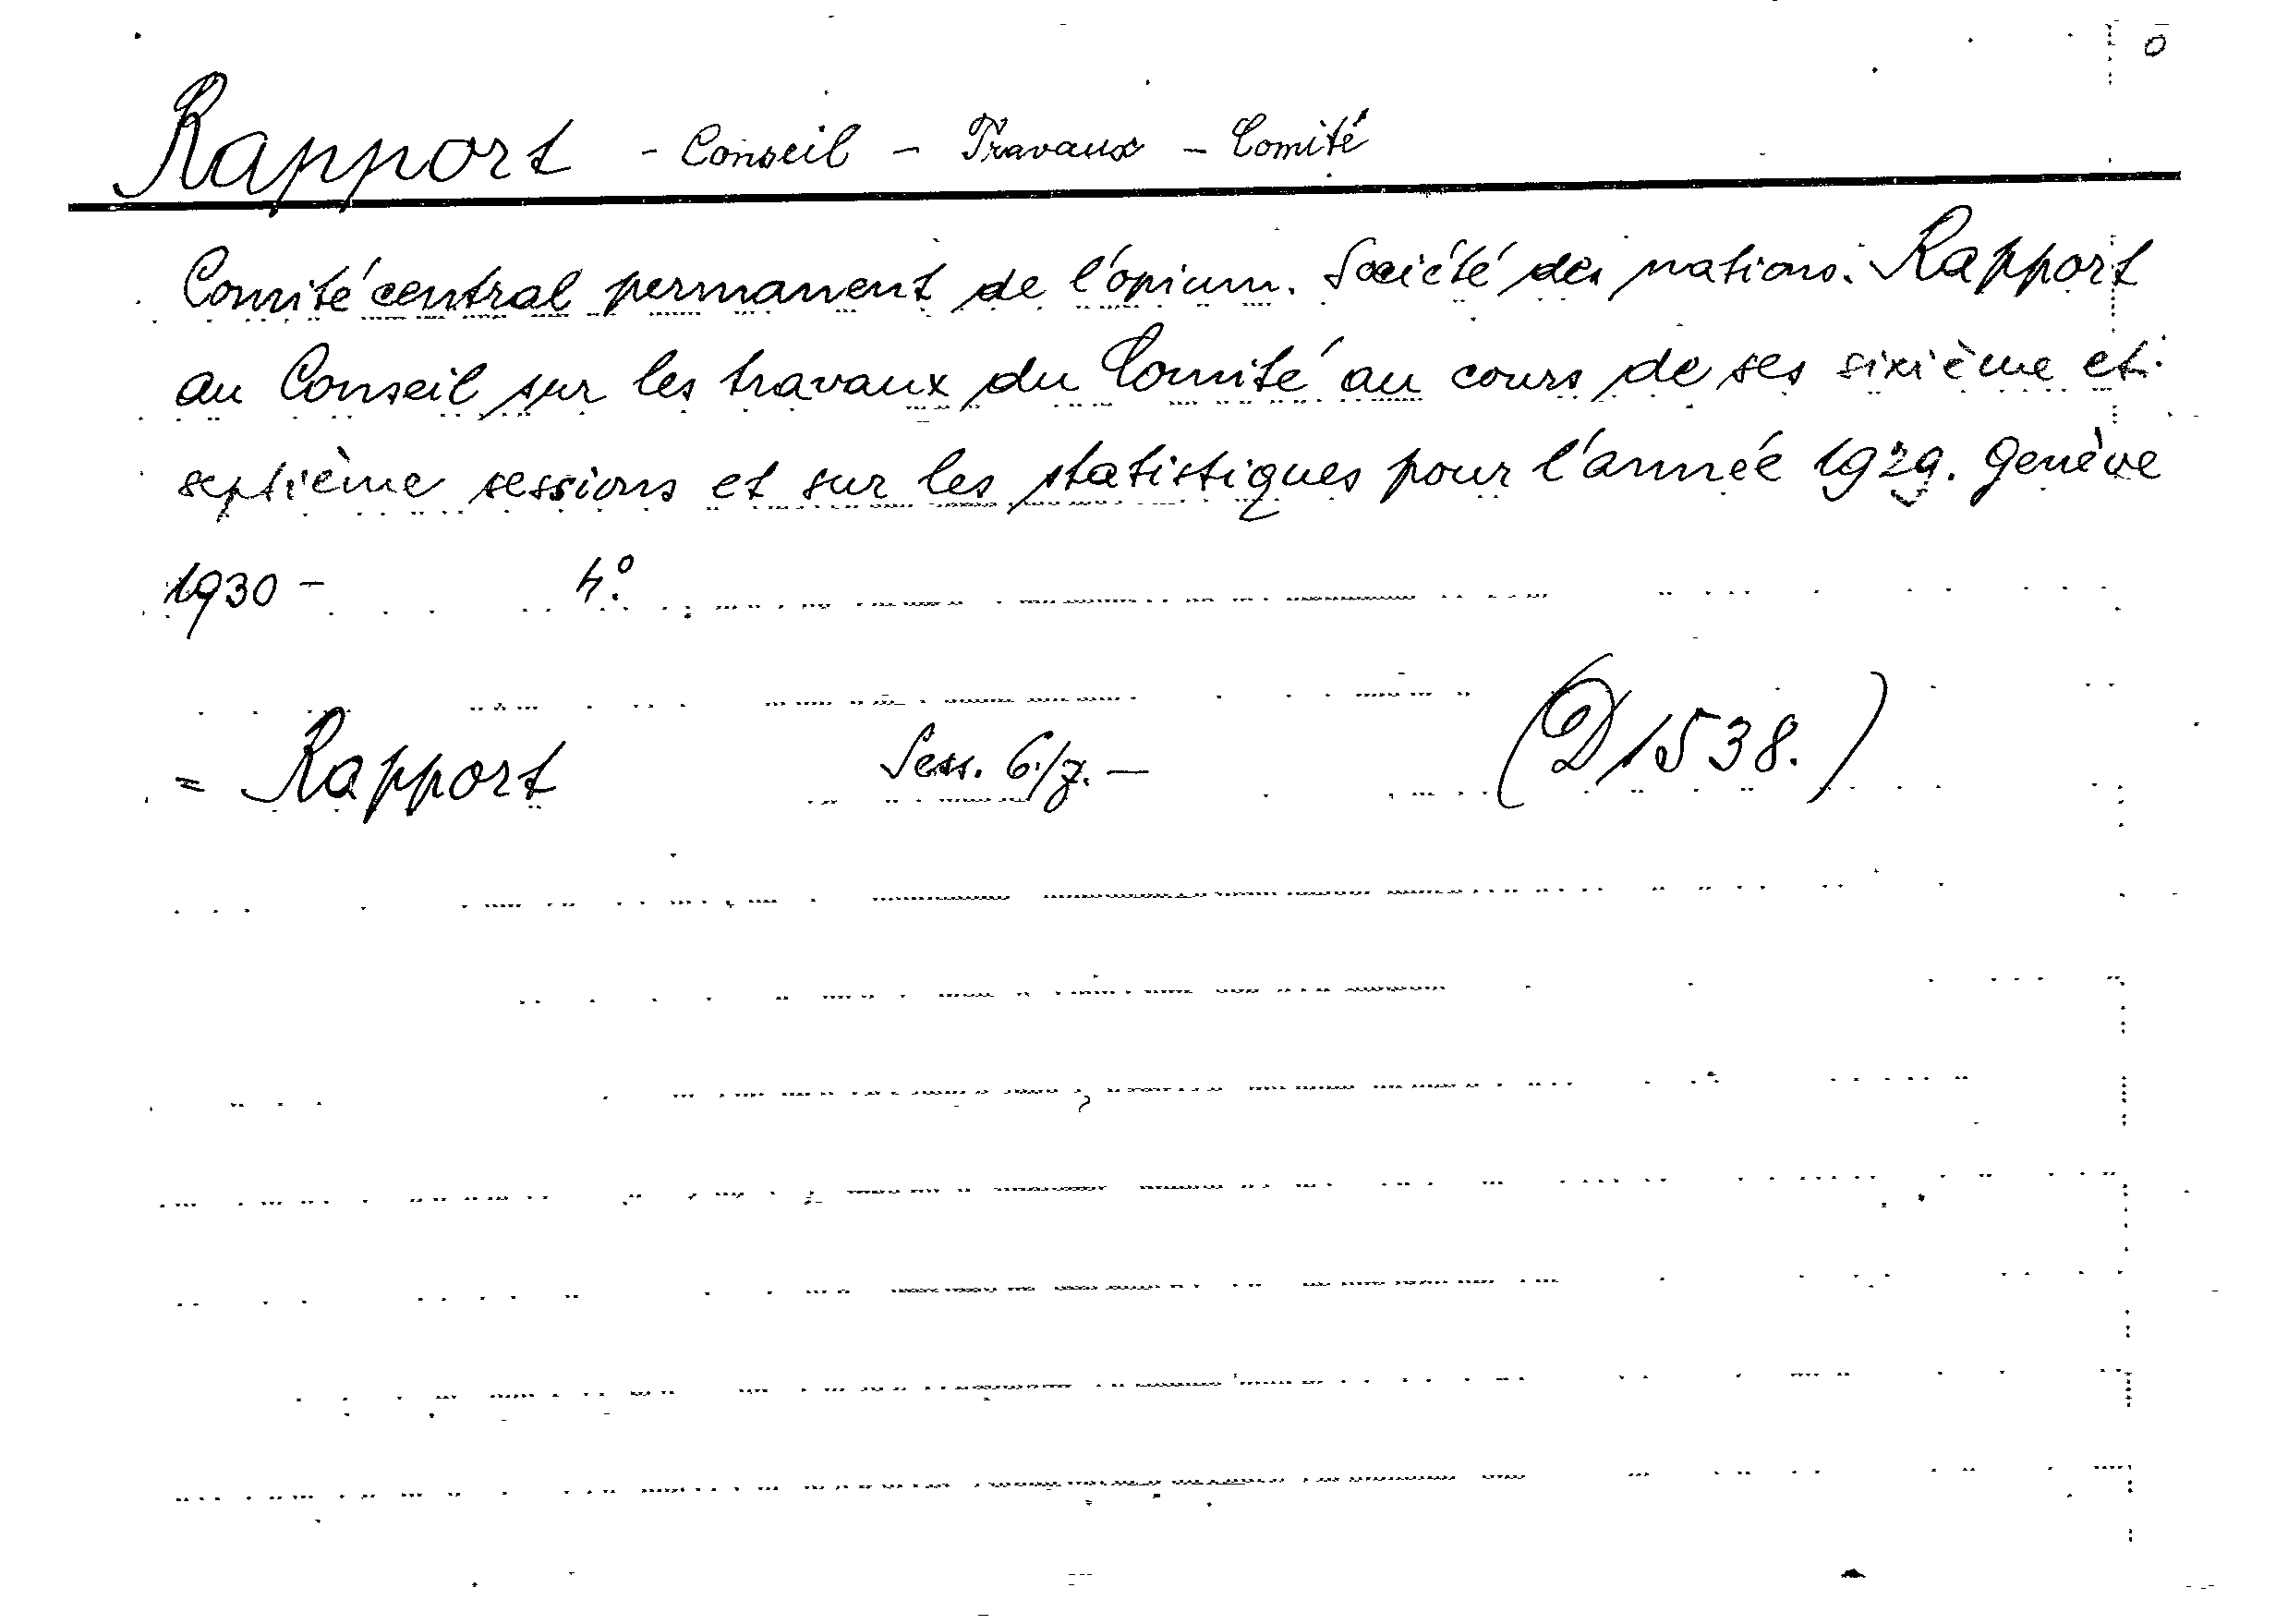 Rapport - Conseil - Travaux - Comité
Comité central permanent de l'opium. Société des nations. Rapport
au Conseil sur les travaux du Comité au cours de ses sixième et
septième sessions et sur les statistiques pour l'année 1929. Genève
1930 - 4°.
= Rapport Sess. 6./7. — (D 1538.)